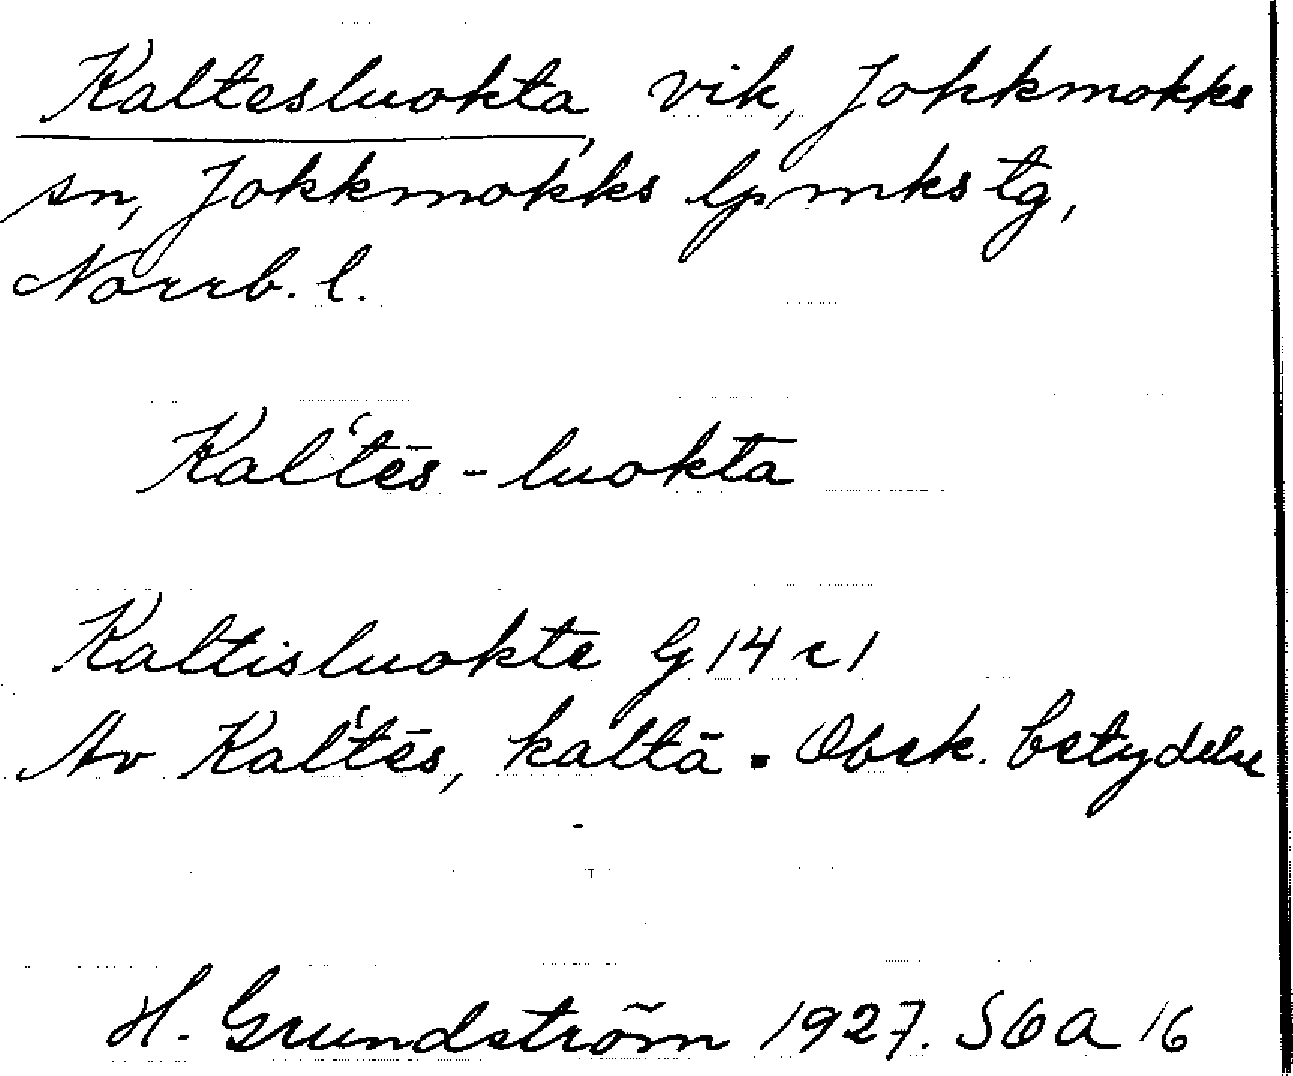 Kaltesluokta, vik, Jokkmokks
sn, Jokkmokks lpmks tg,
Norrb. l.
Kalʽtēs-luokta
Kaltisluokte G 14 c 1
Av Kalʽtēs, kaltā. Obek. betydelse
H. Grundström 1927. SOA 16